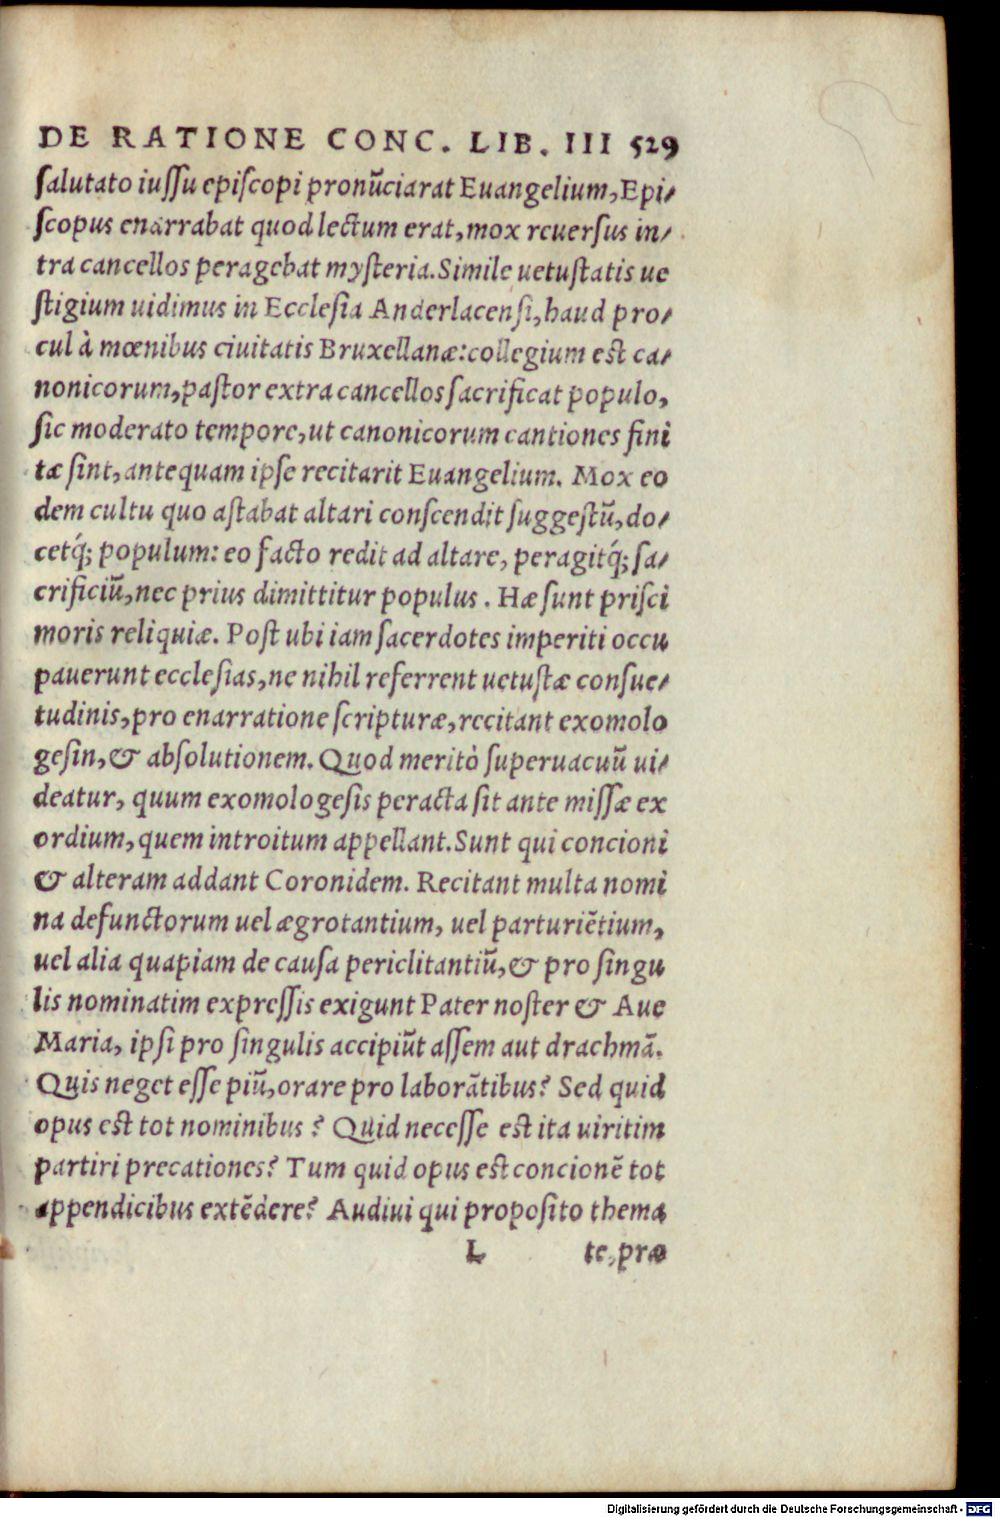 DE RATIONE CONC. LIB. III 529
salutato iussu episcopi pronũciarat Euangelium, Epi-
scopus enarrabat quod lectum erat, mox reuersus in-
tra cancellos peragebat mysteria. Simile uetustatis ue
stigium uidimus in Ecclesia Anderlacensi, haud pro-
cul à mœnibus ciuitatis Bruxellanæ: collegium est ca-
nonicorum, pastor extra cancellos sacrificat populo,
sic moderato tempore, ut canonicorum cantiones fini
tæ sint, antequam ipse recitarit Euangelium. Mox eo
dem cultu quo astabat altari conscendit suggestũ, do-
cetq́; populum: eo facto redit ad altare, peragitq́; sa-
crificiũ, nec prius dimittitur populus. Hæ sunt prisci
moris reliquiæ. Post ubi iam sacerdotes imperiti occu
pauerunt ecclesias, ne nihil referrent uetustæ consue-
tudinis, pro enarratione scripturæ, recitant exomolo
gesin, & absolutionem. Quod meritò superuacuũ ui-
deatur, quum exomologesis peracta sit ante missæ ex
ordium, quem introitum appellant. Sunt qui concioni
& alteram addant Coronidem. Recitant multa nomi
na defunctorum uel ægrotantium, uel parturiẽtium,
uel alia quapiam de causa periclitantiũ, & pro singu
lis nominatim expressis exigunt Pater noster & Aue
Maria, ipsi pro singulis accipiũt assem aut drachmã.
Quis neget esse piũ, orare pro laborãtibus? Sed quid
opus est tot nominibus? Quid necesse est ita uiritim
partiri precationes? Tum quid opus est concionẽ tot
appendicibus extẽdere? Audiui qui proposito thema
L te, præ
Digitalisierung gefördert durch die Deutsche Forschungsgemeinschaft - DFG